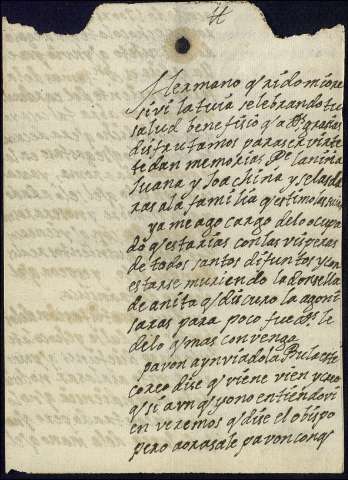 Hermano qrido mio re
sivi la tuia selebrando tu
salud benefisio q a Ds grasias
disfrutamos para servirte
te dan memorias Pe la niña
Juana y Joachina y selas da
ras a la familia q estimo las suias
ya me ago cargo de lo ocupa
do q estarias con las visperas
de todos santos difuntos y con
estarse muriendo la donsella
de anita qe discuro la agoni
saras para poco fue Ds le
de lo q mas convenga
pavon a ynviado la Bula este
coreo dise q viene vien y creo
q si aynq yo no entiendo vi
en veremos q dise el obispo
pero aora sale pavon con q